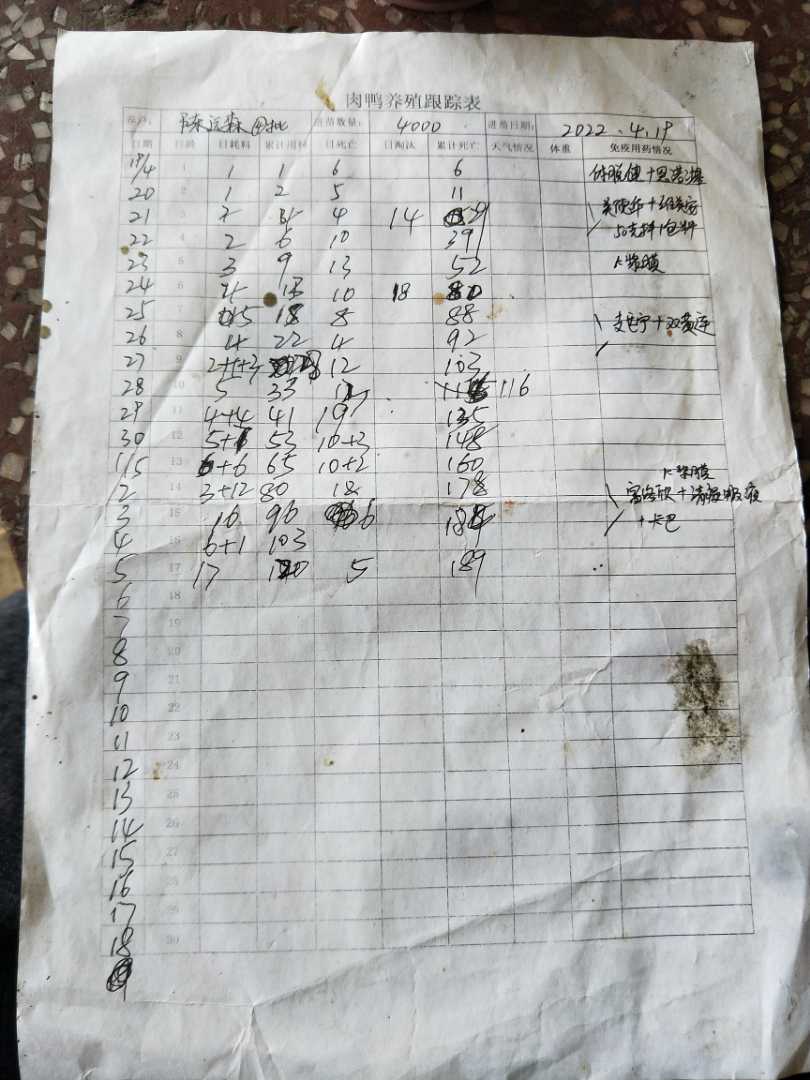 肉鸭养殖跟踪表
养户: 陈远森 进苗数量: 4000 进苗日期: 2022.4.19
日期 日龄 日耗料 累计用料 日死亡 日淘汰 累计死亡 天气情况 体重 免疫用药情况
19/4 1 1 1 6 6
20 2 1 2 5 11
21 3 4 14
22 4 2 6 10 39
23 5 3 9 13 52 浆膜
24 6 4 13 10 18 80
25 7 5 18 8 88 +双黄连
26 8 4 22 4 92
27 9 2+1+3 12 103
28 10 5 33 116
29 11 4+4 41 19 135
30 12 53 10+3 148
1/5 13 6+6 65 10+2 160 浆膜
2 14 3+12 80 18 178
3 15 16 96 6 184 +卡巴
4 16 6+1 103
5 17 17 120 5 189
6 18
7 19
8 20
9 21
10 22
11 23
12 24
13 25
14 26
15 27
16 28
17 29
18 30